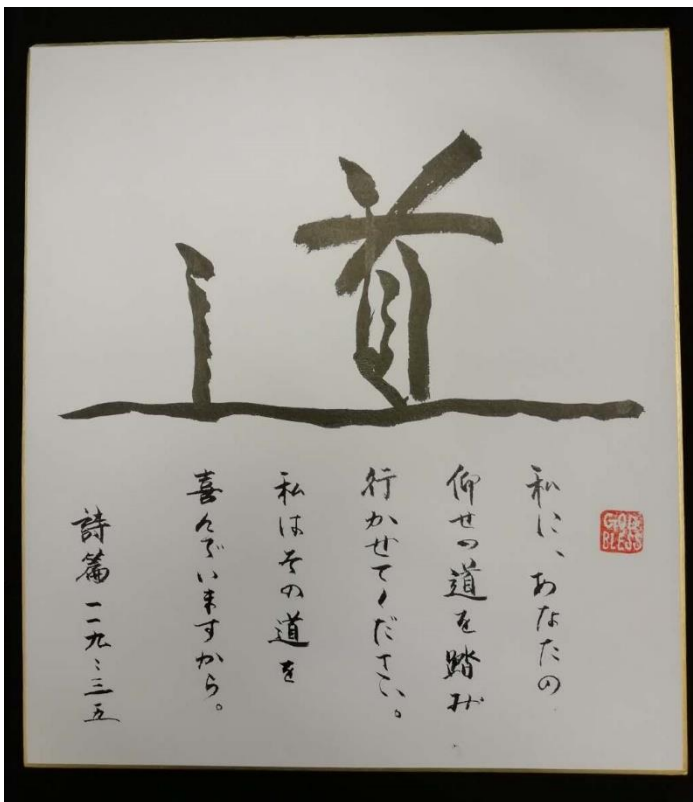 道
GOD
BLESS
私に、あなたの
仰せの道を踏み
行かせてください。
私はその道を
喜んでいますから。
詩篇一一九:三五